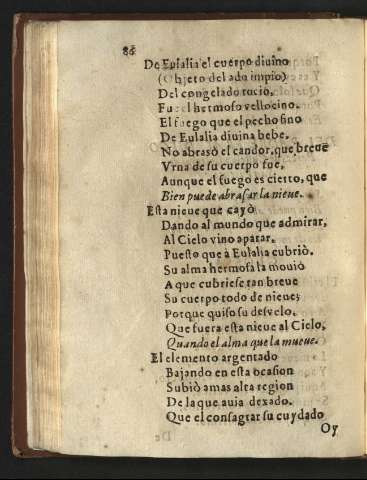 86
De Eulalia el cuerpo diuino
(Objeto del adu impio)
Del congelado rocio,
Fue el hermoso vellocino.
El fuego que el pecho fino
De Eulalia diuina bebe.
No abrasò el candor, que breue
Vrna de su cuerpo fue,
Aunque el fuego es cierto, que
Bien puede abrasar la nieue.
Esta nieue que cayò
Dando al mundo que admirar,
Al Cielo vino a parar.
Puesto que à Eulalia cubriò.
Su alma hermosa la mouiò
A que cubriese tan breue
Su cuerpo todo de nieue;
Porque quiso su desvelo.
Que fuera esta nieue al Cielo,
Quando el alma que la mueue.
El elemento argentado
Bajando en esta ocasion
Subiò a mas alta region
De la que auia dexado.
Que el consagrar su cuydado
Oy